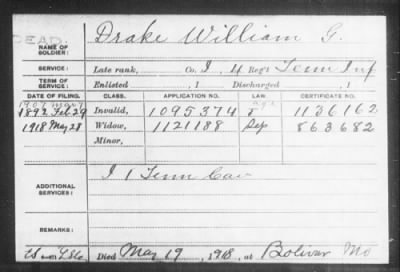 DEAD.
NAME OF SOLDIER: Drake William G.
SERVICE: Late rank, Co. I, Reg't Tenn Inf
TERM OF SERVICE: Enlisted , 1 Discharged , 1
DATE OF FILING. CLASS. APPLICATION NO. LAW. CERTIFICATE NO.
1907 Mar 7
1892 Feb 29 Invalid, 1095374 1136162
1918 May 28 Widow, 1121188 Sep 863682
Minor,
ADDITIONAL SERVICES: I 1 Tenn Cav
REMARKS:
Died May 19, 1918, at Bolivar Mo